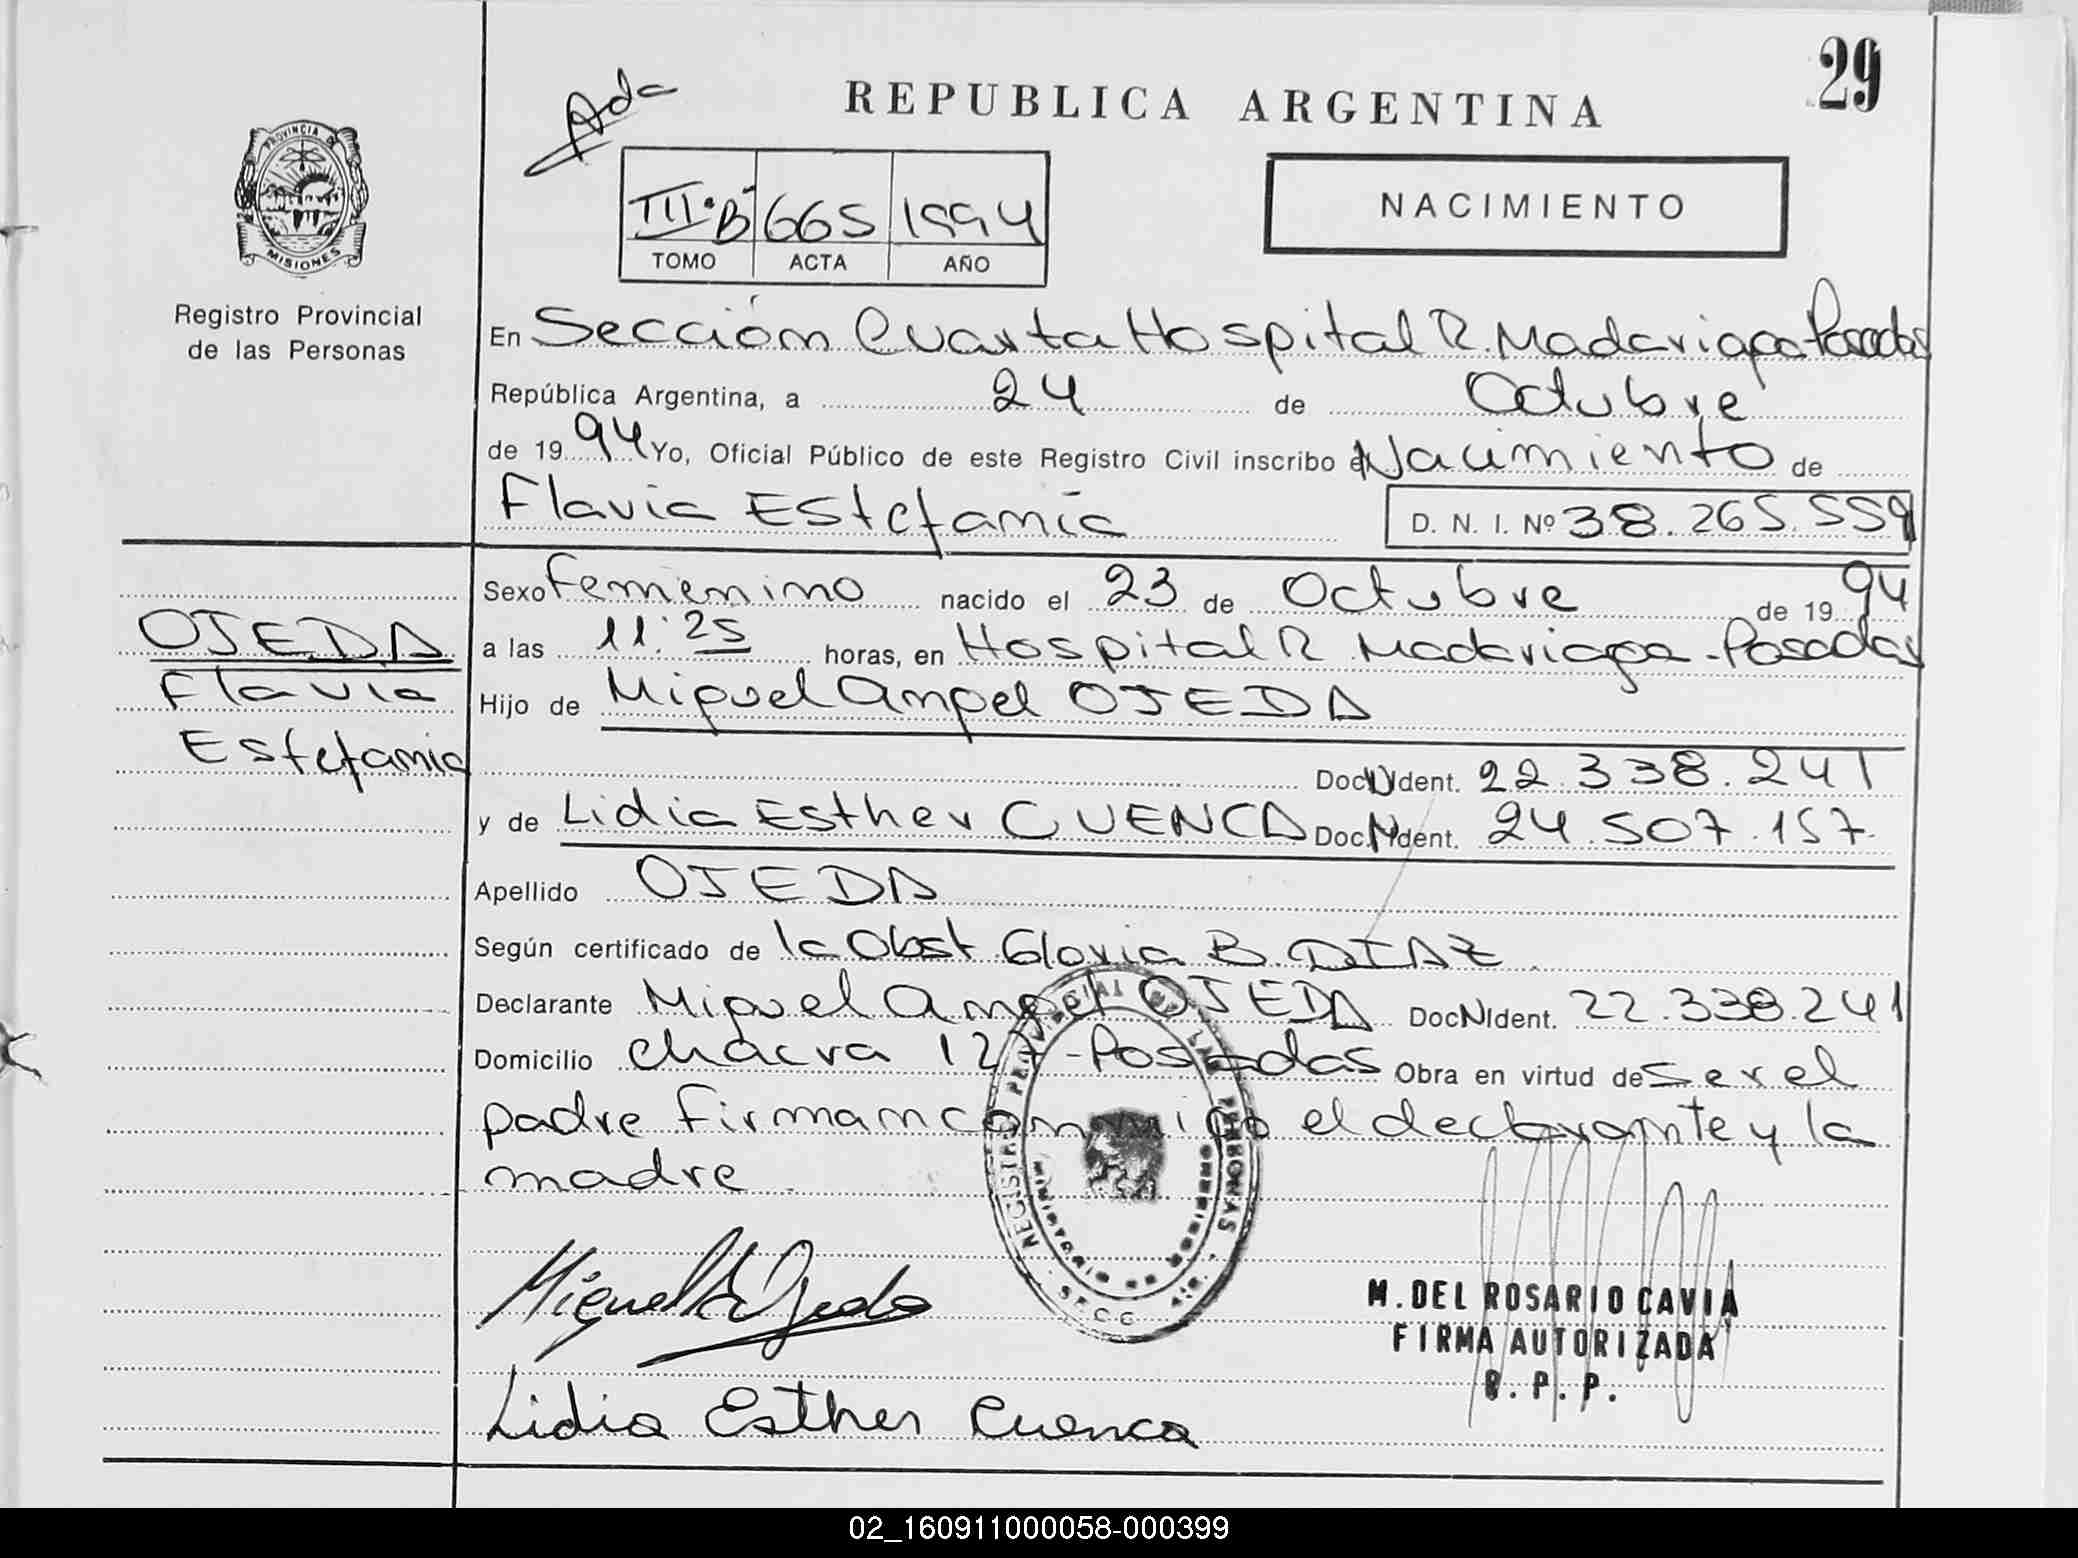 29
Ada
REPUBLICA ARGENTINA
PROVINCIA DE
MISIONES
Registro Provincial
de las Personas
III·B 665 1994
TOMO ACTA AÑO
NACIMIENTO
En Sección Cuarta Hospital R. Madariaga Posadas
República Argentina, a 24 de Octubre
de 1994 Yo, Oficial Público de este Registro Civil inscribo el Nacimiento de
Flavia Estefania D. N. I. Nº 38.265.559
Sexo Femenino nacido el 23 de Octubre de 1994
a las 11:25 horas, en Hospital R Madariaga - Posadas
Hijo de Miguel Angel OJEDA
Doc. N Ident. 22.338.241
y de Lidia Esther CUENCA Doc. N Ident. 24.507.157
Apellido OJEDA
Según certificado de la Obst. Gloria B. DIAZ
Declarante Miguel Angel OJEDA Doc N Ident. 22.338.241
Domicilio chacra 127 - Posadas Obra en virtud de ser el
padre firman conmigo el declarante y la
madre
OJEDA
Flavia
Estefania
REGISTRO PROVINCIAL DE LAS PERSONAS
MINISTERIO DE GOBIERNO
SECC. 4
Miguel A Ojeda
Lidia Esther Cuenca
M. DEL ROSARIO CAVIA
FIRMA AUTORIZADA
R. P. P.
02_160911000058-000399